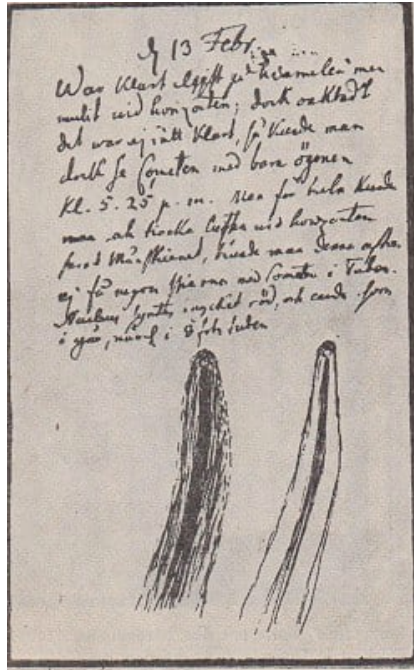 13 Febr.
War klart himmelen men
mulit wid horizonten; dock oaktadt
det war ej rätt klart, så kunde man
dock se Cometen med bara ögonen
Kl. 5. 25 p. m. Men för kunde
man och tiocka luften wid horizonten
Månskienet, kunde man denna afton
ej få någon stjerna med Cometen i Tuben.
Nucleus syntes mycket röd, och cauda som
i går, i 8 fots tuben